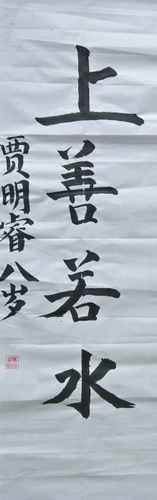 上善若水
贾明睿八岁